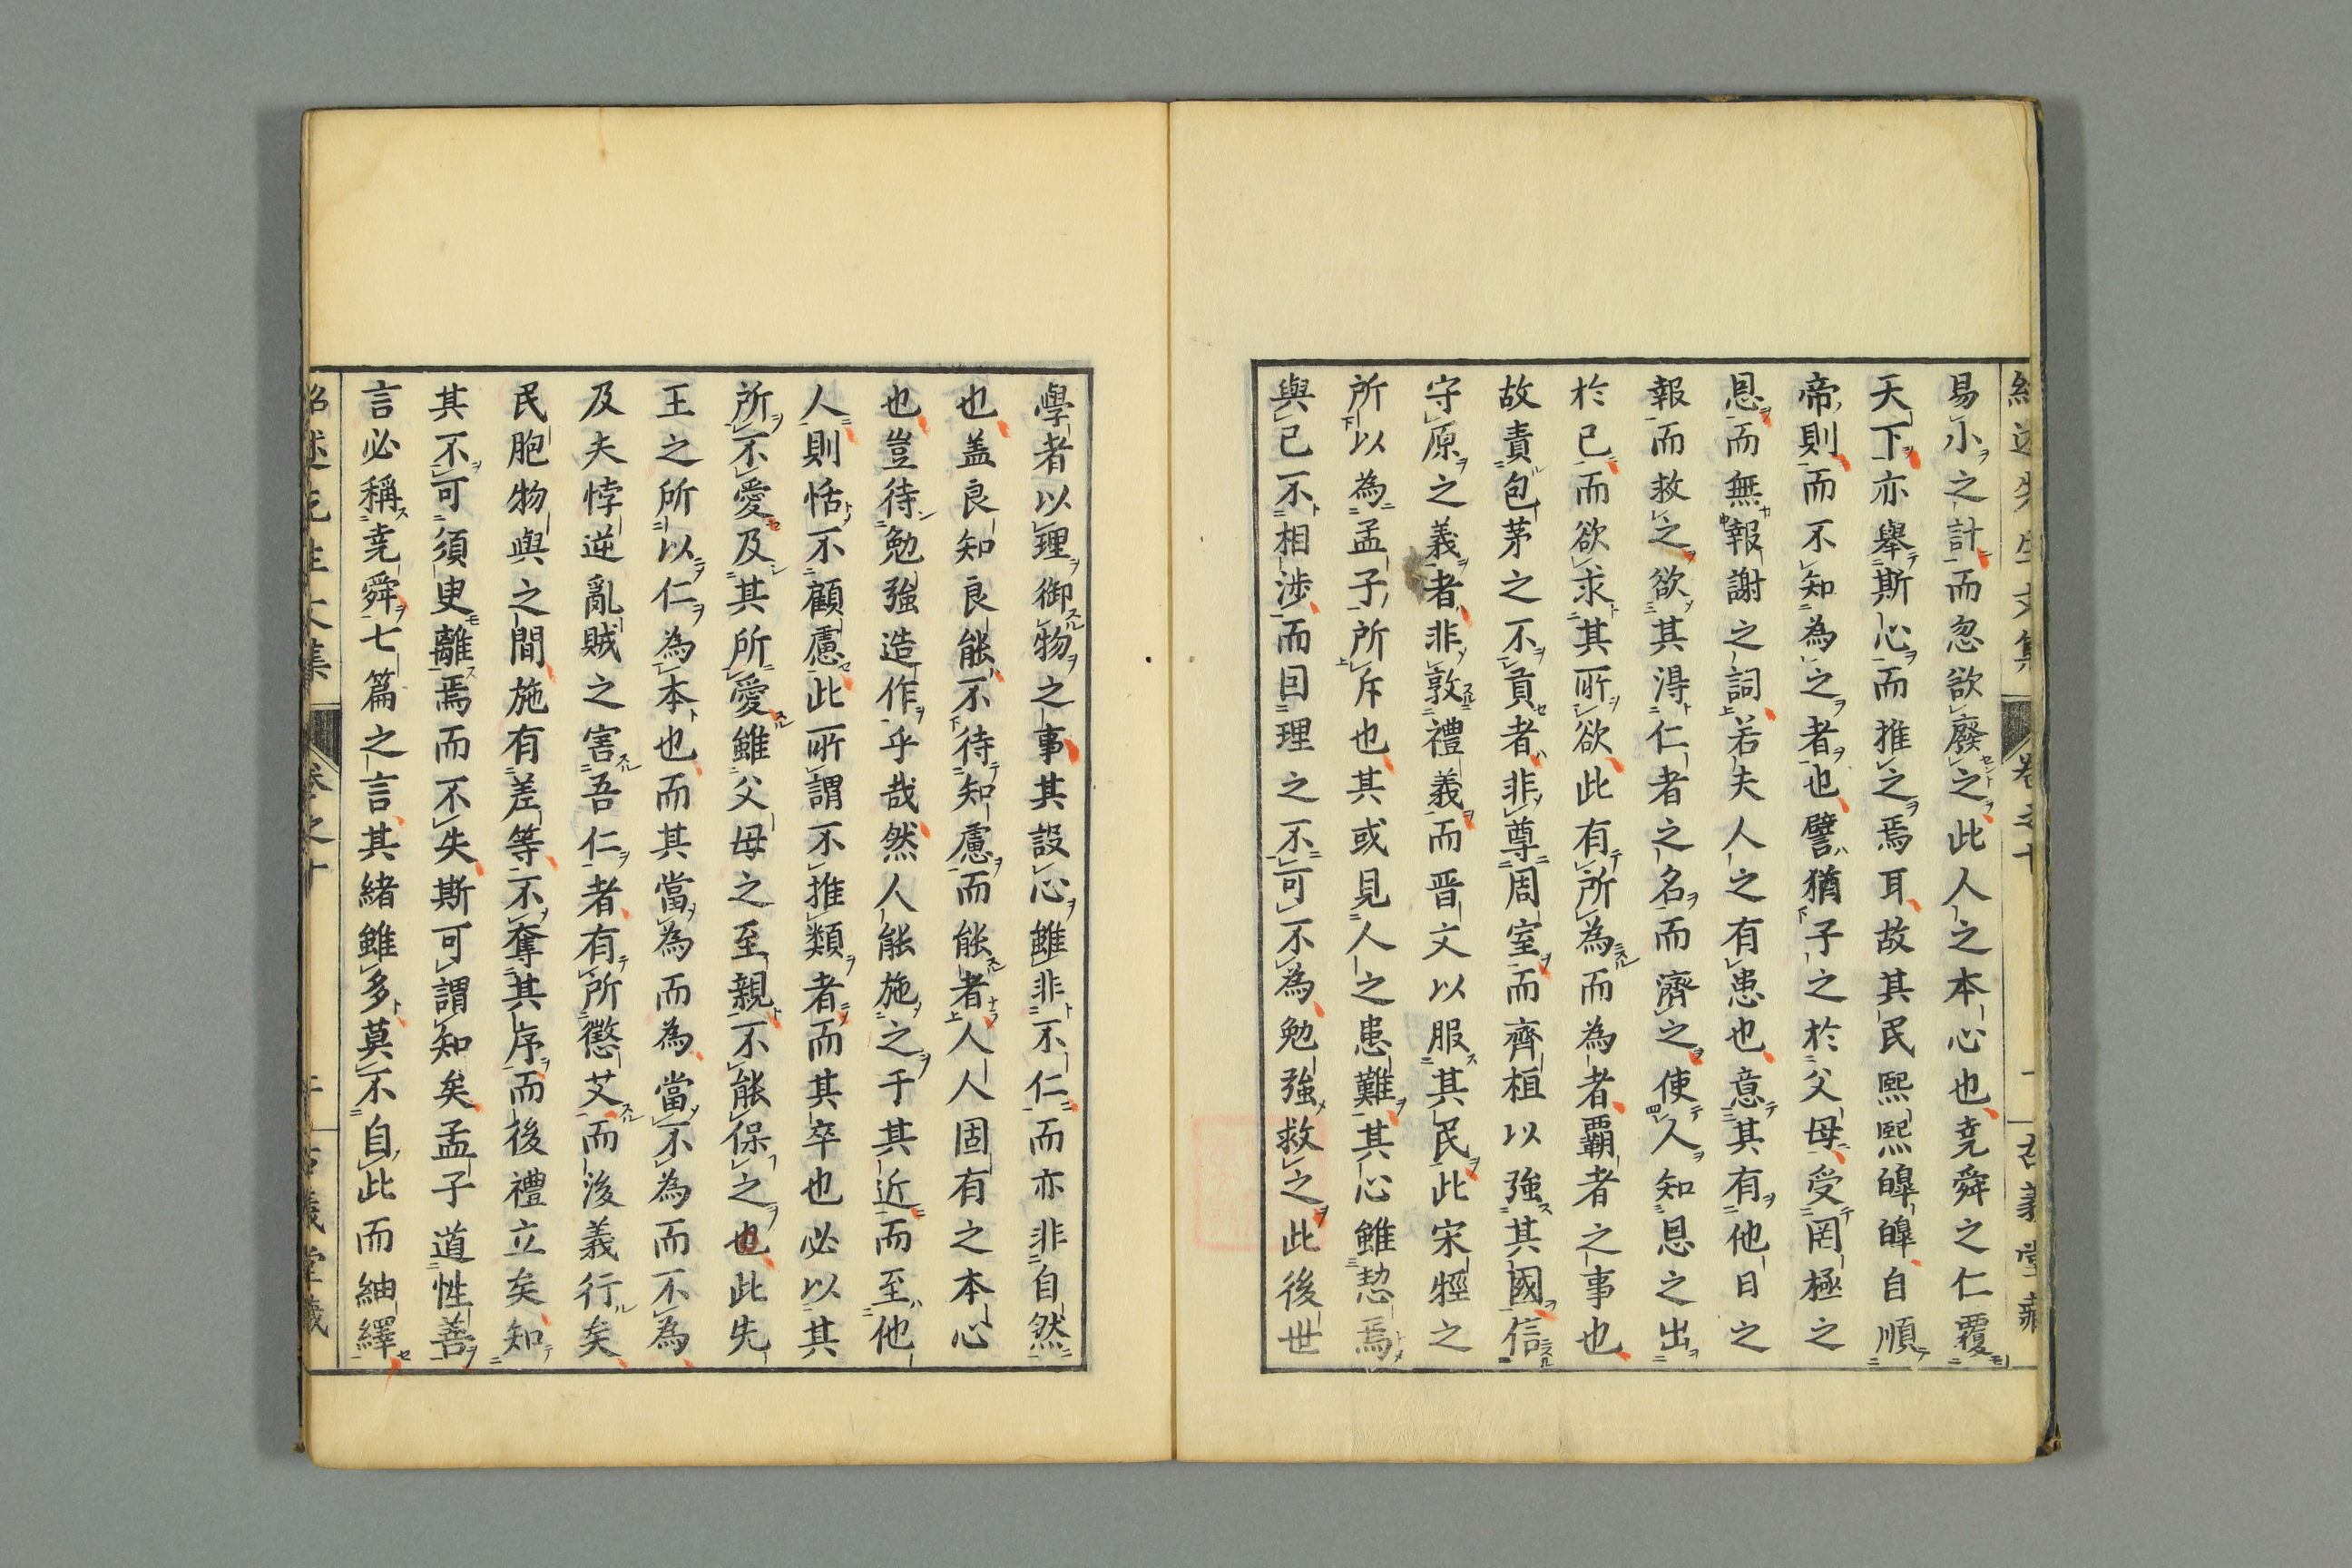 易小之計而忽欲廢之此人之本心也堯舜之仁覆
天下亦舉斯心而推之焉耳故其民熙熙皥皥自順
帝則而不知為之者也譬猶子之於父母受罔極之
恩而無報謝之詞若夫人之有患也意其有他日之
報而救之欲其淂仁者之名而濟之使人知恩之出
於己而欲求其所欲此有所為而為者覇者之事也
故責包茅之不貢者非尊周室而齊桓以強其國信
守原之義者非敦禮義而晋文以服其民此宋牼之
所以為孟子所斥也其或見人之患難其心雖愸焉
與己不相渉而曰理之不可不為勉強救之此後世
學者以理御物之事其設心雖非不仁而亦非自然
也盖良知良能不待知慮而能者人人固有之本心
也豈待勉強造作乎哉然人能施之于其近而至他
人則恬不顧慮此所謂不推類者而其卒也必以其
所不愛及其所愛雖父母之至親不能保之也此先
王之所以仁為本也而其當為而為當不為而不為
及夫悖逆亂賊之害吾仁者有所懲艾而後義行矣
民胞物與之間施有差等不奪其序而後禮立矣知
其不可須臾離焉而不失斯可謂知矣孟子道性善
言必稱堯舜七篇之言其緒雖多莫不自此而紬繹
紹述先生文集 卷之十 古義堂藏